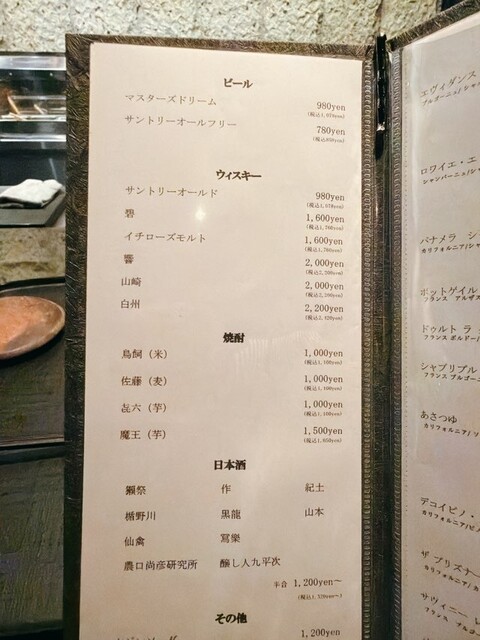 ビール
マスターズドリーム 980yen
(税込1,078yen)
サントリーオールフリー 780yen
(税込858yen)
ウィスキー
サントリーオールド 980yen
(税込1,078yen)
碧 1,600yen
(税込1,760yen)
イチローズモルト 1,600yen
(税込1,760yen)
響 2,000yen
(税込2,200yen)
山崎 2,000yen
(税込2,200yen)
白州 2,200yen
(税込2,420yen)
焼酎
鳥飼（米） 1,000yen
(税込1,100yen)
佐藤（麦） 1,000yen
(税込1,100yen)
㐂六（芋） 1,000yen
(税込1,100yen)
魔王（芋） 1,500yen
(税込1,650yen)
日本酒
獺祭 作 紀土
楯野川 黒龍 山本
仙禽 寫樂
農口尚彦研究所 醸し人九平次
半合 1,200yen～
(税込1,320yen～)
その他
1,200yen
エヴィダンス
ブルゴーニュ/シャ
ロワイエ・エ
シャンパーニュ/シャ
パナメラ シ
カリフォルニア/シャ
ボットゲイル
フランス アルザス
ドゥルト ラ
フランス ボルドー/
シャブリブル
フランス ブルゴー
あさつゆ
カリフォルニア/ソ
デコイピノ・
カリフォルニア/ピ
ザ プリズナー
カリフォルニア/カ
サヴィニー レ
フランス ブル